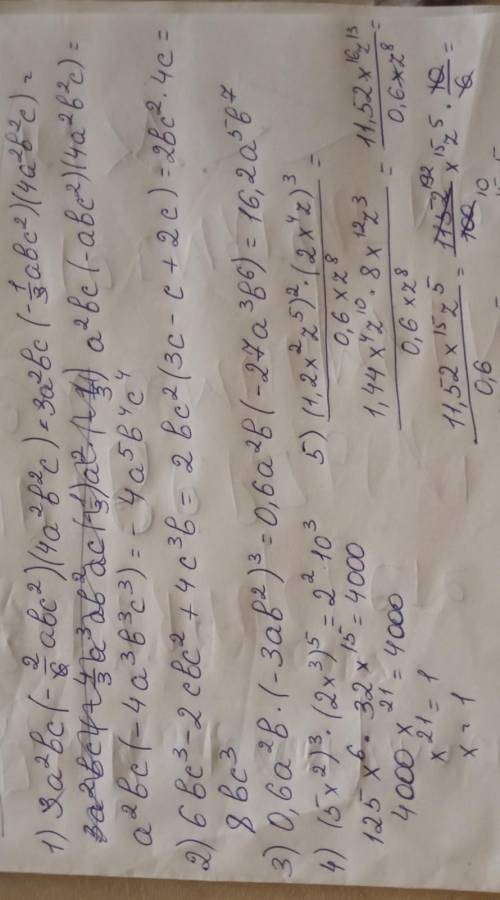 1) 3a²bc(-2/6 abc²)(4a²b²c)=3a²bc(-1/3 abc²)(4a²b²c)=
a²bc(-abc²)(4a²b²c)=
a²bc(-4a³b³c³)=-4a⁵b⁴c⁴
2) 6bc³-2cbc²+4c³b=2bc²(3c-c+2c)=2bc²·4c=
8bc³
3) 0,6a²b·(-3ab²)³=0,6a²b(-27a³b⁶)=16,2a⁵b⁷
4) (5x²)³·(2x³)⁵=2²10³
125x⁶·32x¹⁵=4000
4000x²¹=4000
x²¹=1
x=1
5) (1,2x²z⁵)²·(2x⁴z)³ / 0,6xz⁸ =
1,44x⁴z¹⁰·8x¹²z³ / 0,6xz⁸ = 11,52x¹⁶z¹³ / 0,6xz⁸ =
11,52x¹⁵z⁵ / 0,6 = 1152 192 / 100 10 x¹⁵z⁵ · 10 / 6 =